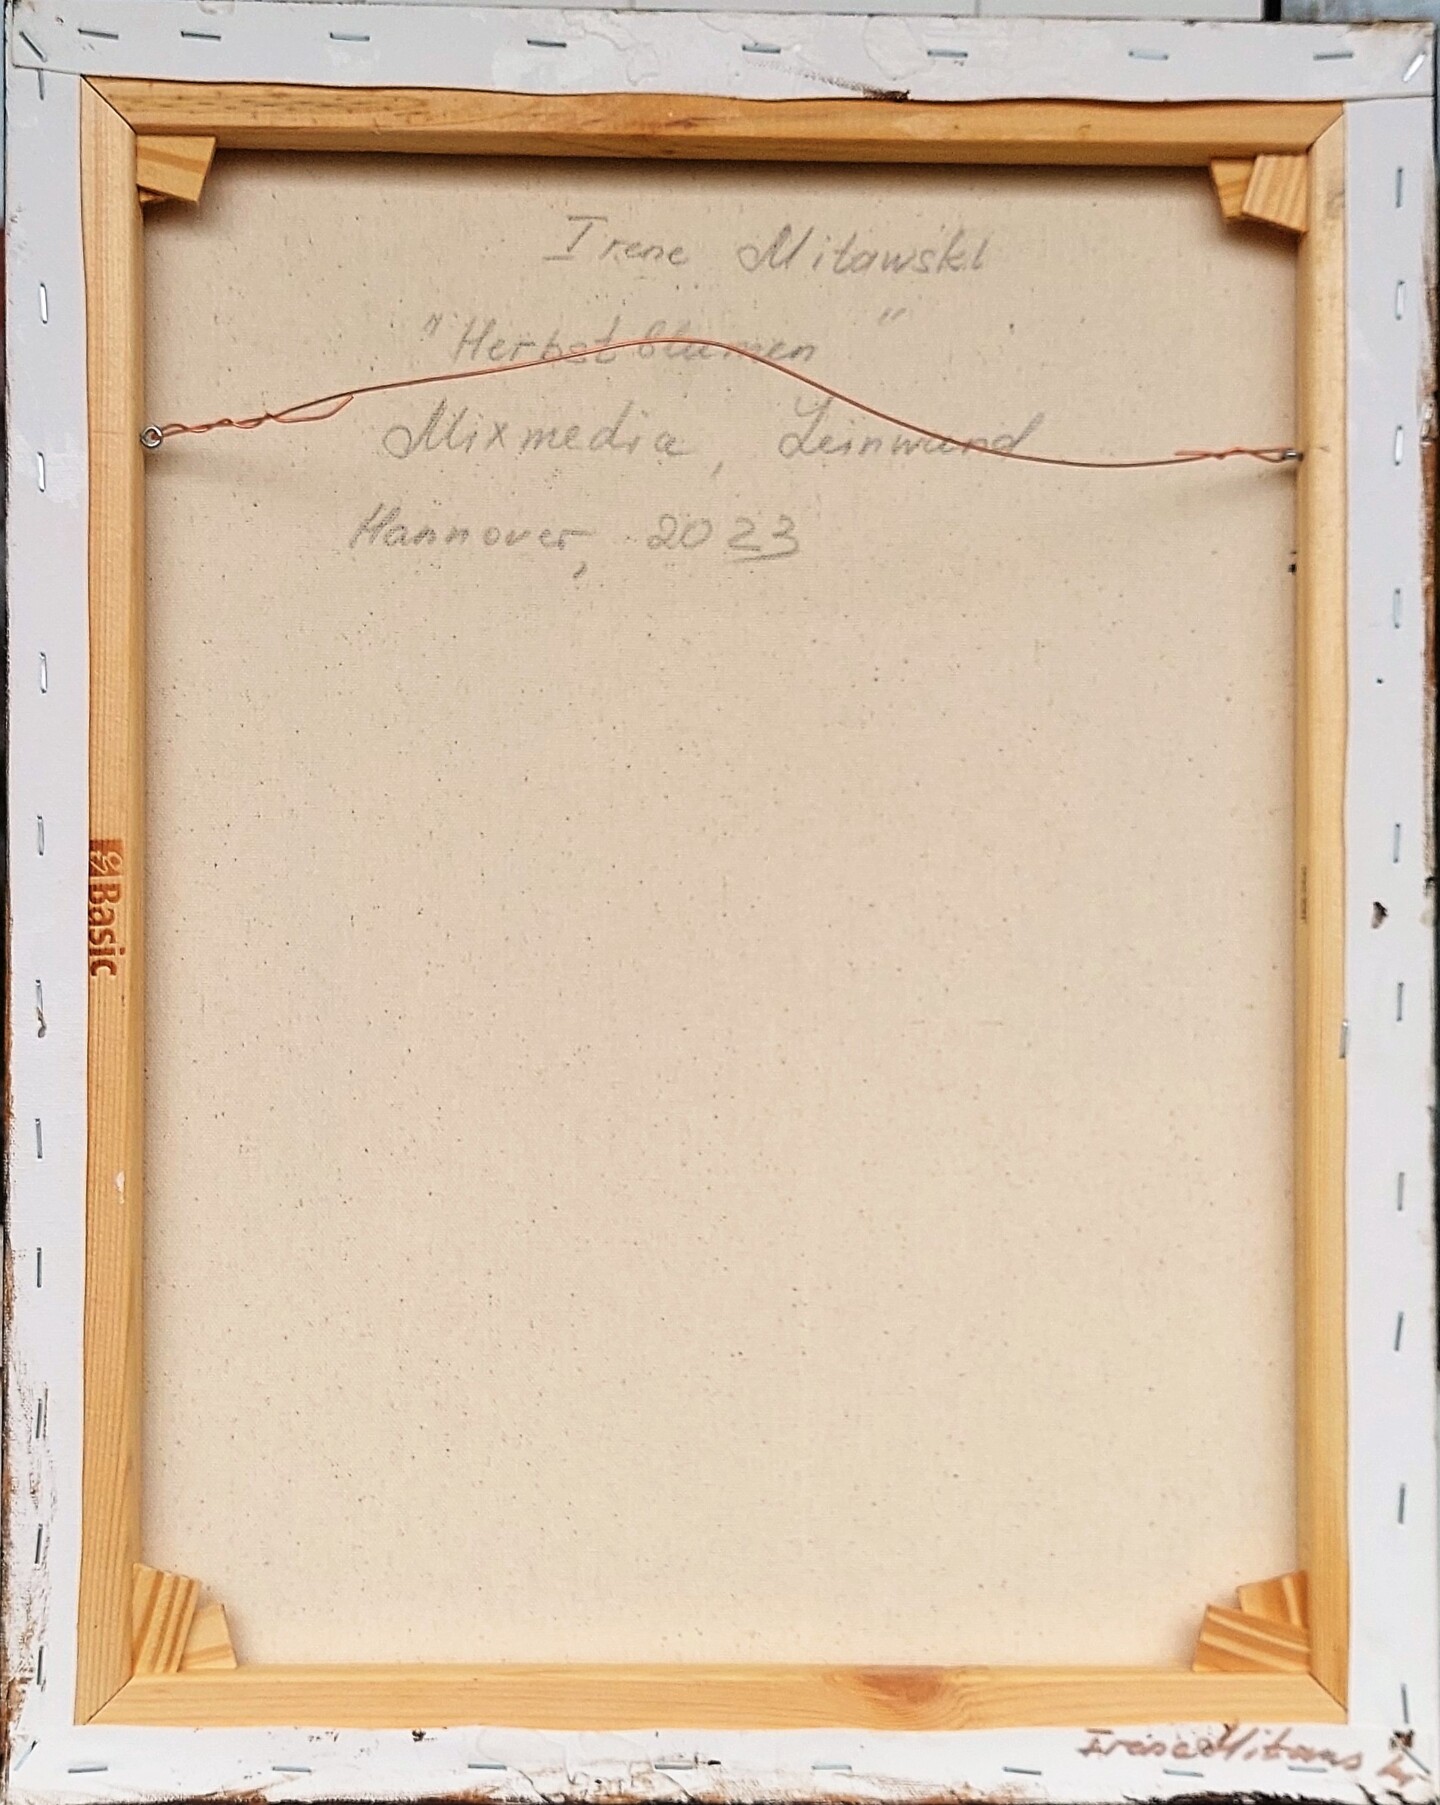 Irene Mitawski
"Herbstblumen"
Mixmedia, Leinwand
Hannover, 2023
Basic
Irene Mitawski